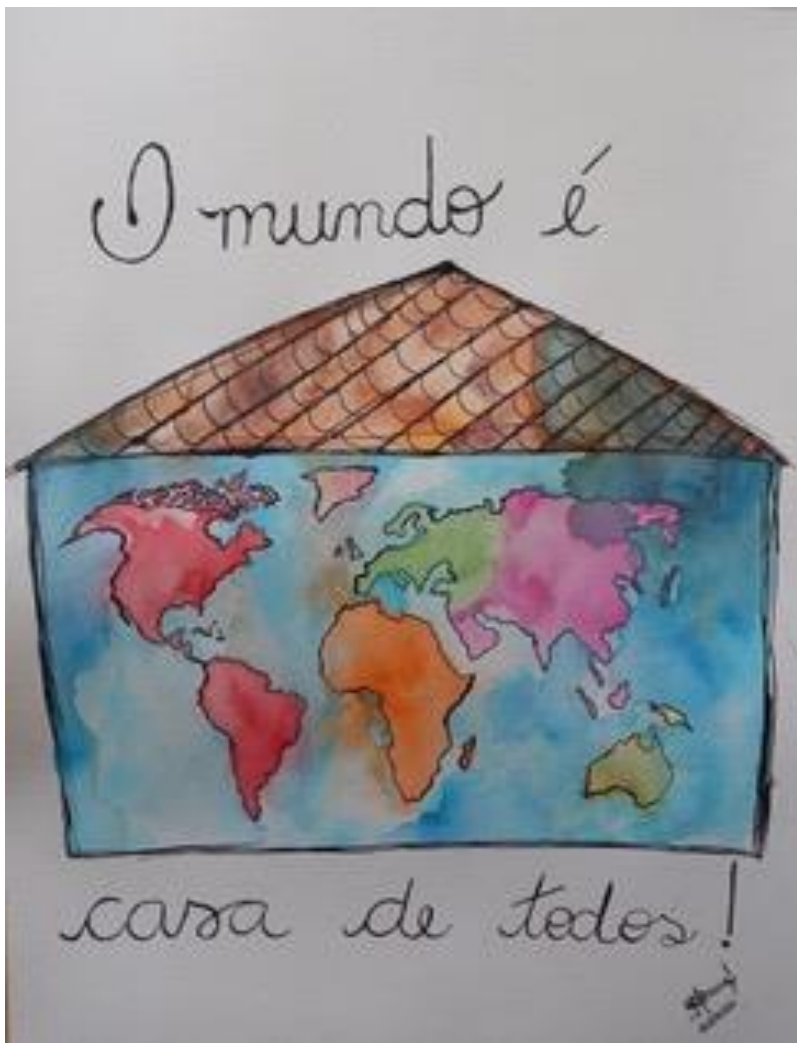 O mundo é
casa de todos!